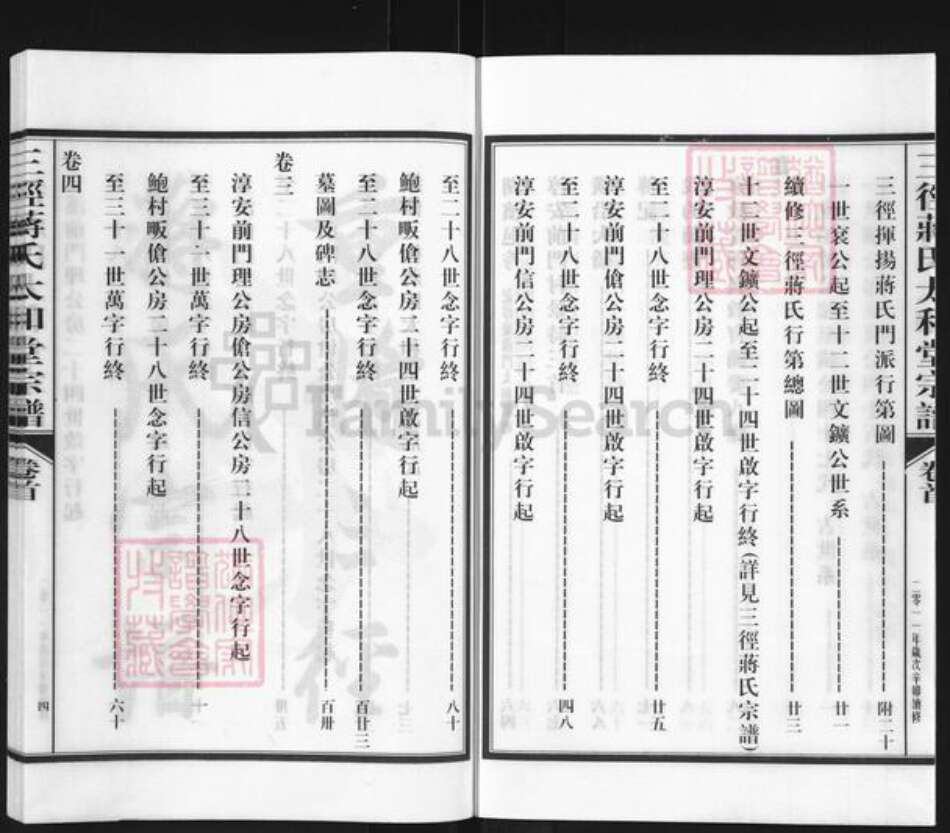 三徑蔣氏太和堂宗譜
卷首
二零一一年歲次辛卯續修
三徑揮揚蔣氏門派行第圖 附二十
一世袞公起至十二世文鑛公世系 廿一
續修三徑蔣氏行第總圖 廿三
十三世文鑛公起至二十四世啟字行終(詳見三徑蔣氏宗譜)
淳安前門理公房二十四世啟字行起
至二十八世念字行終 廿五
淳安前門傖公房二十四世啟字行起
至二十八世念字行終 四八
淳安前門信公房二十四世啟字行起
至二十八世念字行終 八十
鮑村畈傖公房二十四世啟字行起
至二十八世念字行終 百廿三
墓圖及碑志 百卅
卷三
淳安前門理公房傖公房信公房二十八世念字行起
至三十一世萬字行終
鮑村畈傖公房二十八世念字行起
至三十一世萬字行終 六十
卷四
三徑蔣氏太和堂宗譜
卷首
四
FamilySearch